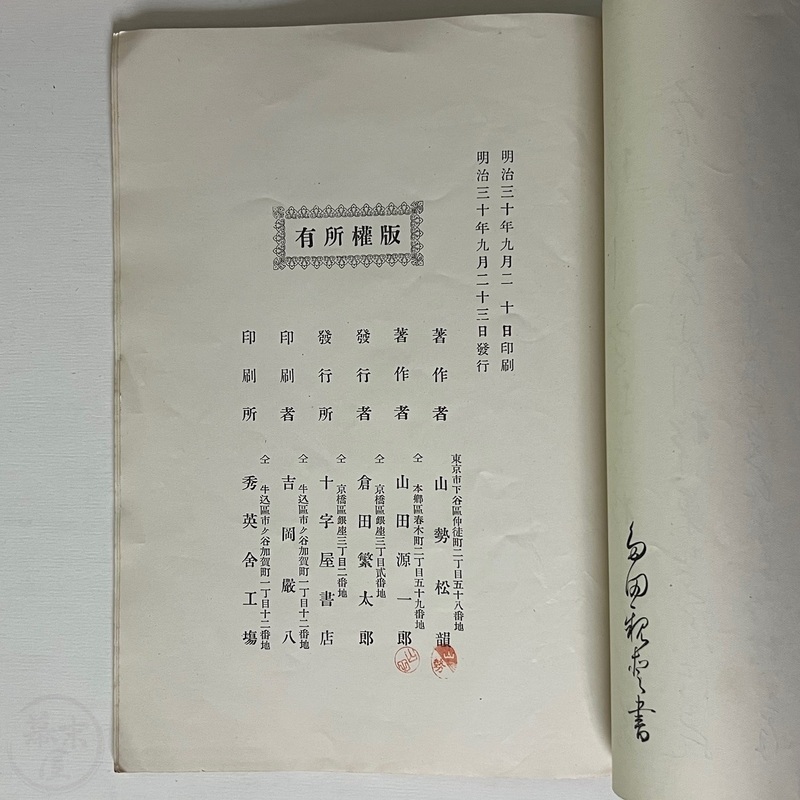 明治三十年九月二十日印刷
明治三十年九月二十三日發行
版權所有
著作者
東京市下谷區仲徒町二丁目五十八番地
山勢松韻
著作者
仝 本鄉區春木町二丁目五十九番地
山田源一郎
發行者
仝 京橋區銀座三丁目貳番地
倉田繁太郎
發行所
仝 京橋區銀座三丁目二番地
十字屋書店
印刷者
仝 牛込區市ケ谷加賀町一丁目十二番地
吉岡嚴八
印刷所
仝 牛込區市ケ谷加賀町一丁目十二番地
秀英舍工塲
山勢
山田
幕末屋